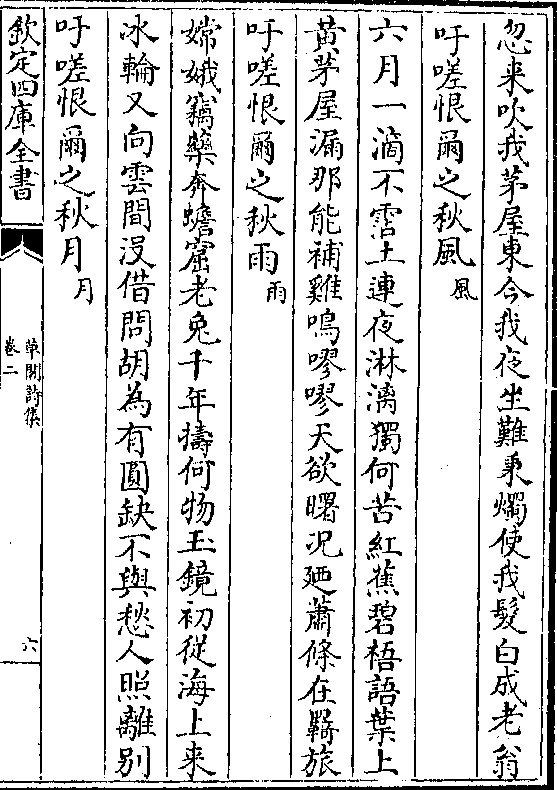 忽来吹我茅屋東今我夜坐難秉燭使我髮白成老翁
吁嗟恨爾之秋風風
六月一滴不霑土連夜淋漓獨何苦紅蕉碧梧語葉上
黄茅屋漏那能補雞鳴嘐嘐天欲曙况廼蕭條在羇旅
吁嗟恨爾之秋雨雨
嫦娥竊藥奔蟾窟老兎千年擣何物玉鏡初從海上来
冰輪又向雲間没借問胡為有圓缺不與愁人照離别
吁嗟恨爾之秋月月
欽定四庫全書
草閣詩集
卷二
六